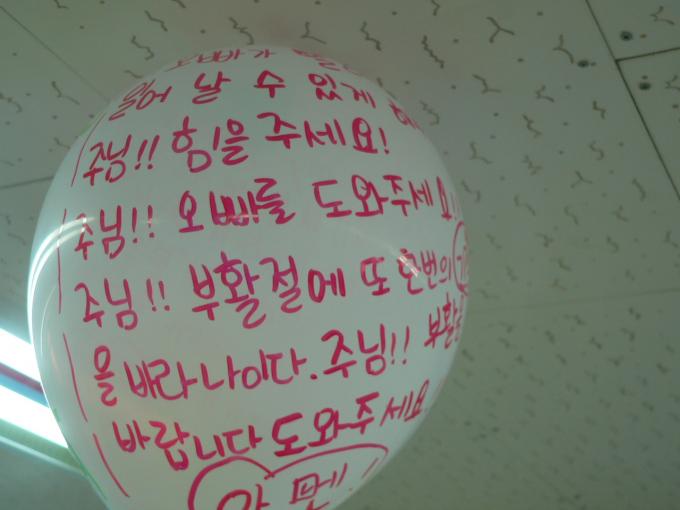 오빠가
일어 날 수 있게 해
주님!! 힘을 주세요!
주님!! 오빠를 도와주세요!
주님!! 부활절에 또 한번의
을 바라나이다. 주님!! 부활을
바랍니다 도와주세요!
아멘!